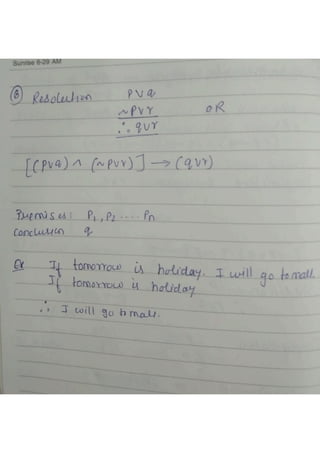 Sunrise 6-29 AM
⑧ Resolution p ∨ q
~p ∨ r OR
∴ q ∨ r
[(p ∨ q) ∧ (~p ∨ r)] → (q ∨ r)
Premises: P₁, P₂ ..... Pn
Conclusion q
Ex If tomorrow is holiday. I will go to mall.
If tomorrow is holiday
∴ I will go to mall.